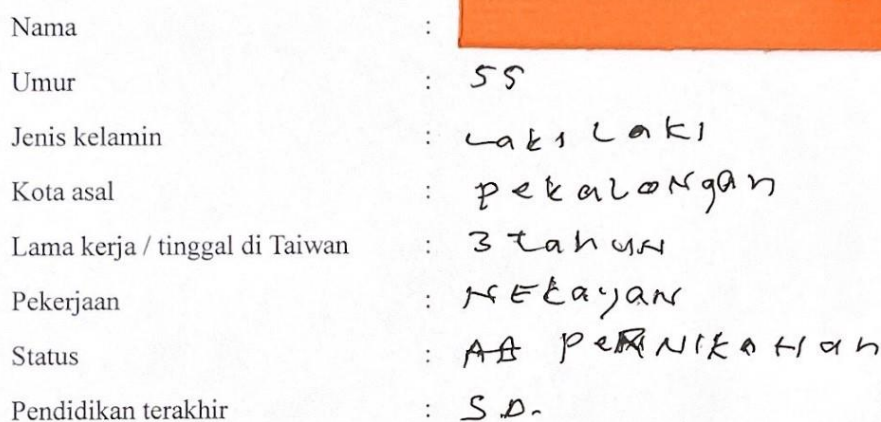 Nama :
Umur : 55
Jenis kelamin : Laki Laki
Kota asal : pekalongan
Lama kerja / tinggal di Taiwan : 3 tahun
Pekerjaan : NEkayan
Status : peRNIKaHan
Pendidikan terakhir : S.D.